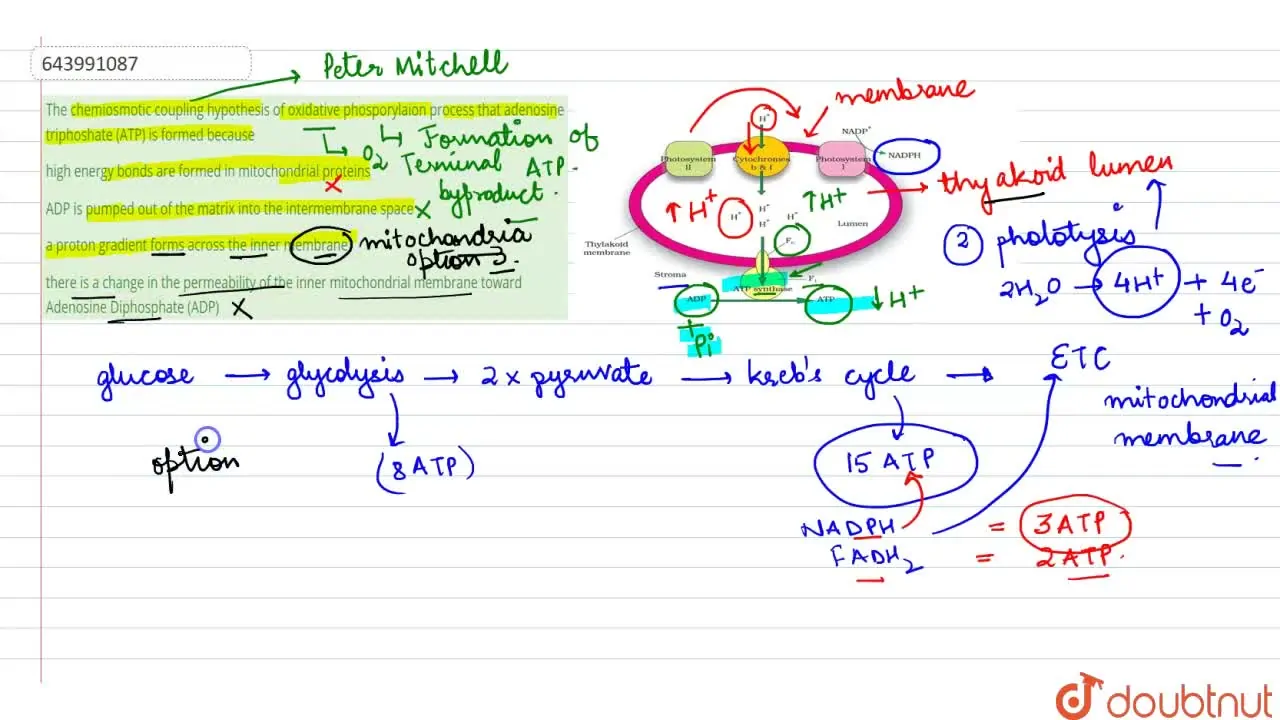 643991087
Peter Mitchell
The chemiosmotic coupling hypothesis of oxidative phosporylaion process that adenosine
triphoshate (ATP) is formed because
high energy bonds are formed in mitochondrial proteins
ADP is pumped out of the matrix into the intermembrane space
a proton gradient forms across the inner membrane
there is a change in the permeability of the inner mitochondrial membrane toward
Adenosine Diphosphate (ADP)
Formation of
O2 Terminal ATP
byproduct.
mitochondria
option 3.
membrane
H+
NADP+
NADPH
Photosystem
II
Cytochromes
b & f
Photosystem
I
↑ H+
H+
H+
H+
H+
↑H+
Lumen
thyakoid lumen
Thylakoid
membrane
F0
Stroma
F1
ATP synthase
ADP
ATP
↓ H+
+
Pi
2 photolysis
2H2O → 4H+ + 4e-
+ O2
glucose → glycolysis → 2 x pyruvate → kreb's cycle → ETC
mitochondrial
membrane
option
(8 ATP)
15 ATP
NADPH = 3ATP
FADH2 = 2ATP.
doubtnut